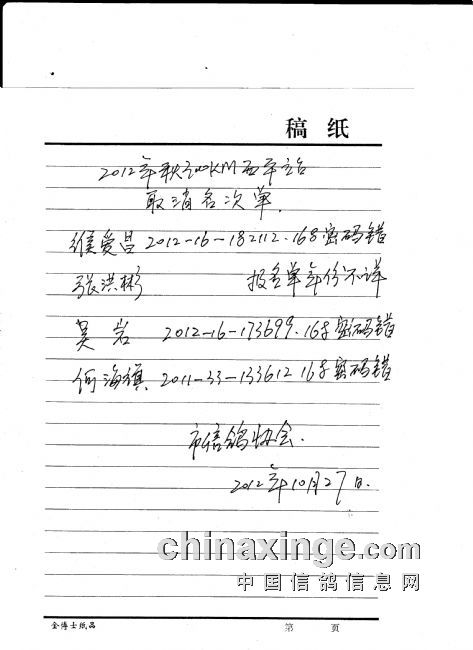 稿 纸
2012年秋300KM西平站
取消名次单.
侯爱昌 2012-16-182112. 168密码错
张洪彬 报名单年份不详
吴岩 2012-16-173699. 168密码错
何海旗 2011-33-133612 168密码错
市信鸽协会.
2012年10月27日.
chinaxinge.com
中国信鸽信息网
金博士纸品 第 页